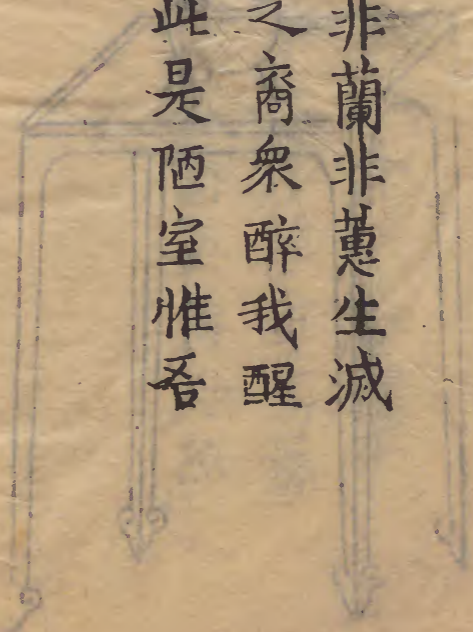 非蘭非蕙生滅
之裔衆醉我醒
此是陋室惟吾